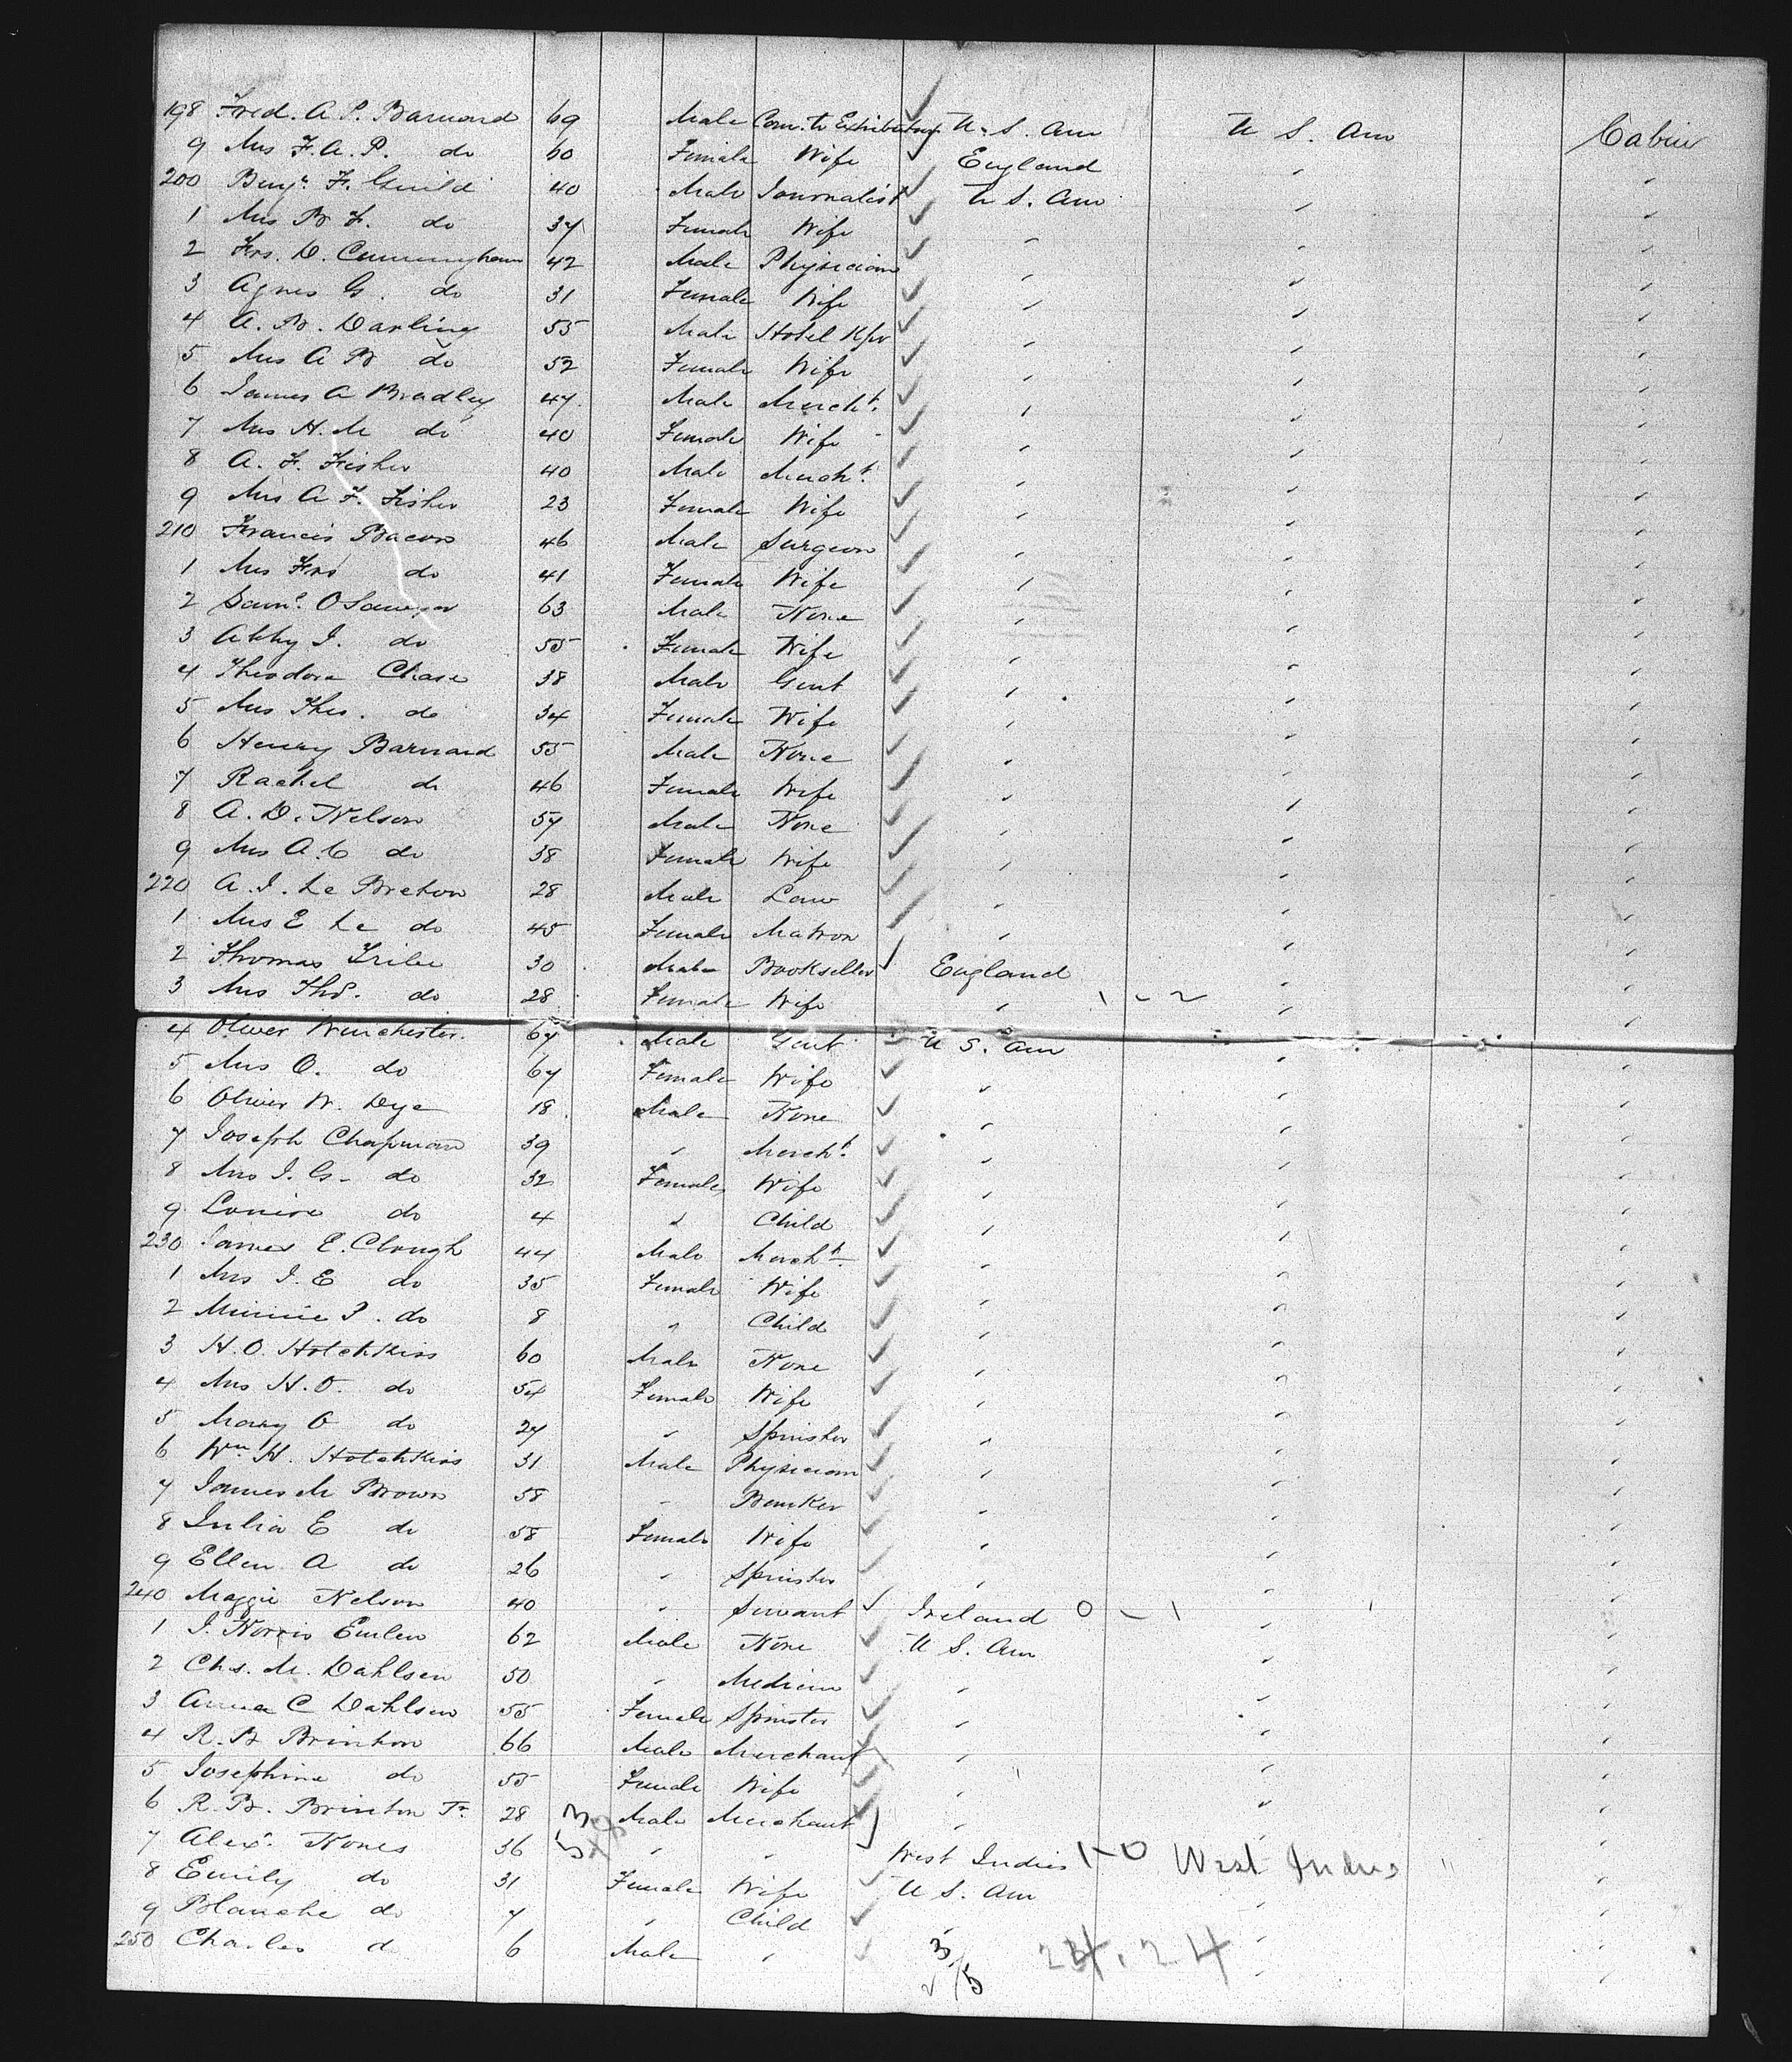 198 Fred. A. P. Barnard 69 Male Com. to Exhibition U. S. Am U S. Am Cabin
9 Mrs F. A. P. do 60 Female Wife England " "
200 Benjn. F. Guild 40 Male Journalist U S. Am " "
1 Mrs B F. do 37 Female Wife " " "
2 Frs. D. Cunningham 42 Male Physician " " "
3 Agnes G. do 31 Female Wife " " "
4 A. B. Darling 55 Male Hotel Kpr " " "
5 Mrs A B do 52 Female Wife " " "
6 James A Bradley 47 Male Mercht. " " "
7 Mrs H. M do 40 Female Wife " " "
8 A. F. Fisher 40 Male Mercht. " " "
9 Mrs A F. Fisher 23 Female Wife " " "
210 Francis Bacon 46 Male Surgeon " " "
1 Mrs Frs do 41 Female Wife " " "
2 Saml. O Sawyer 63 Male None " " "
3 Abby J. do 55 Female Wife " " "
4 Theodore Chase 38 Male Gent " " "
5 Mrs Ths. do 34 Female Wife " " "
6 Henry Barnard 55 Male None " " "
7 Rachel do 46 Female Wife " " "
8 A. D. Nelson 57 Male None " " "
9 Mrs A. C do 38 Female Wife " " "
220 A. J. Le Breton 28 Male Law " " "
1 Mrs E Le do 45 Female Matron " " "
2 Thomas 30 Male Bookseller England " "
3 Mrs Ths. do 28 Female Wife " 1 - 2 " "
4 Oliver Winchester. 67 Male Gent U S. Am " "
5 Mrs O. do 67 Female Wife " " "
6 Oliver W. Dye 18 Male None " " "
7 Joseph Chapman 39 " Mercht. " " "
8 Mrs J. G. do 32 Female Wife " " "
9 Louise do 4 " Child " " "
230 James E. Clough 44 Male Mercht. " " "
1 Mrs J. E do 35 Female Wife " " "
2 Minnie P. do 8 " Child " " "
3 H. O. Hotchkiss 60 Male None " " "
4 Mrs H. O. do 54 Female Wife " " "
5 Mary O do 27 " Spinster " " "
6 Wm H. Hotchkiss 31 Male Physician " " "
7 James M Brown 58 " Banker " " "
8 Julia E do 58 Female Wife " " "
9 Ellen A do 26 " Spinster " " "
240 Maggie Nelson 40 " Servant Ireland 0 - 1 " "
1 J. Norris Emlen 62 Male None U S. Am " "
2 Chs. M. Dahlsen 50 " Medicine " " "
3 Anna C Dahlsen 55 Female Spinster " " "
4 R. B Brinton 66 Male Merchant " " "
5 Josephine do 55 Female Wife " " "
6 R. B. Brinton Jr. 28 Male Merchant " " "
7 Alexr. Nones 36 " " West Indies 1-0 West Indies "
8 Emily do 31 Female Wife U S. Am " "
9 Blanche do 7 " Child " " "
250 Charles do 6 Male " " " "
24. 24